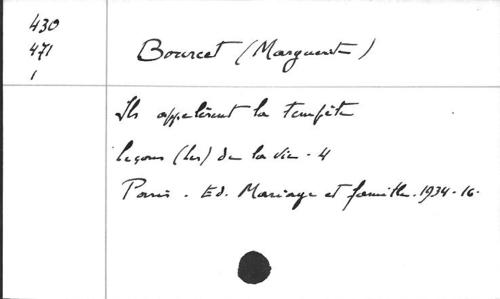 430
471
1
Bourcet (Marguerite)
Ils appelèrent la tempête
Leçons (Les) de la vie - 4
Paris - Ed. Mariage et famille. 1934-16.